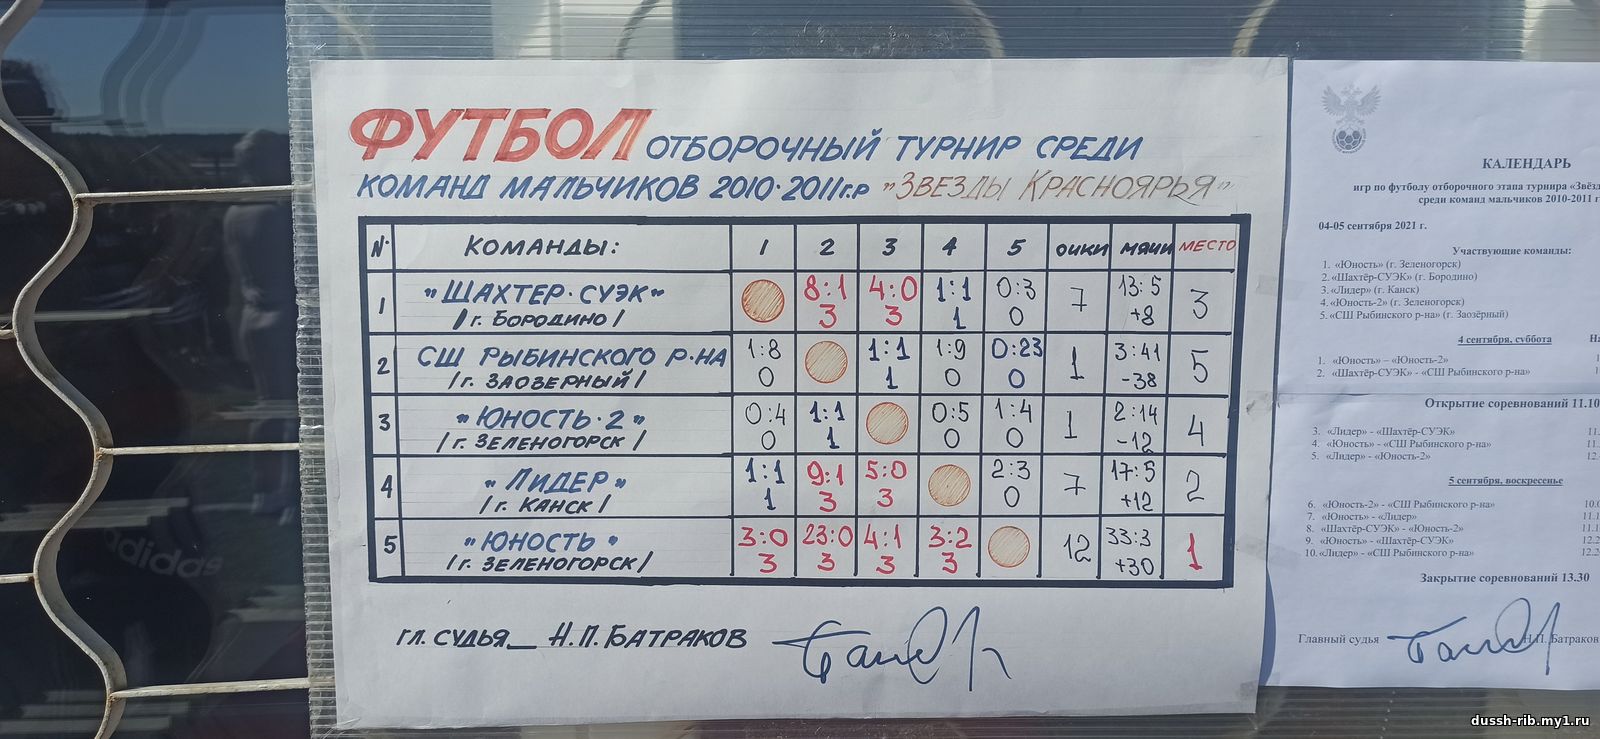 ФУТБОЛ ОТБОРОЧНЫЙ ТУРНИР СРЕДИ
КОМАНД МАЛЬЧИКОВ 2010-2011г.р "ЗВЕЗДЫ КРАСНОЯРЬЯ"
№ КОМАНДЫ: 1 2 3 4 5 ОЧКИ МЯЧИ МЕСТО
1 "ШАХТЕР-СУЭК" 8:1 4:0 1:1 0:3 7 13:5 3
/г. БОРОДИНО/ 3 3 1 0 +8
2 СШ РЫБИНСКОГО Р-НА 1:8 1:1 1:9 0:23 1 3:41 5
/г. ЗАОЗЕРНЫЙ/ 0 1 0 0 -38
3 "ЮНОСТЬ-2" 0:4 1:1 0:5 1:4 1 2:14 4
/г. ЗЕЛЕНОГОРСК/ 0 1 0 0 -12
4 "ЛИДЕР" 1:1 9:1 5:0 2:3 7 17:5 2
/г. КАНСК/ 1 3 3 0 +12
5 "ЮНОСТЬ" 3:0 23:0 4:1 3:2 12 33:3 1
/г. ЗЕЛЕНОГОРСК/ 3 3 3 3 +30
ГЛ. СУДЬЯ_ Н.П. БАТРАКОВ
КАЛЕНДАРЬ
игр по футболу отборочного этапа турнира
среди команд мальчиков 2010-2011
04-05 сентября 2021 г.
Участвующие команды:
1. «Юность» (г. Зеленогорск)
2. «Шахтёр-СУЭК» (г. Бородино)
3. «Лидер» (г. Канск)
4. «Юность-2» (г. Зеленогорск)
5. «СШ Рыбинского р-на» (г. Заозёрный)
4 сентября, суббота
1. «Юность» – «Юность-2»
2. «Шахтёр-СУЭК» - «СШ Рыбинского р-на»
Открытие соревнований 11.10
3. «Лидер» - «Шахтёр-СУЭК»
4. «Юность» - «СШ Рыбинского р-на»
5. «Лидер» - «Юность-2»
5 сентября, воскресенье
6. «Юность-2» - «СШ Рыбинского р-на»
7. «Юность» - «Лидер»
8. «Шахтёр-СУЭК» - «Юность-2»
9. «Юность» - «Шахтёр-СУЭК»
10. «Лидер» - «СШ Рыбинского р-на»
Закрытие соревнований 13.30
Главный судья Н.П. Батраков
adidas
dussh-rib.my1.ru